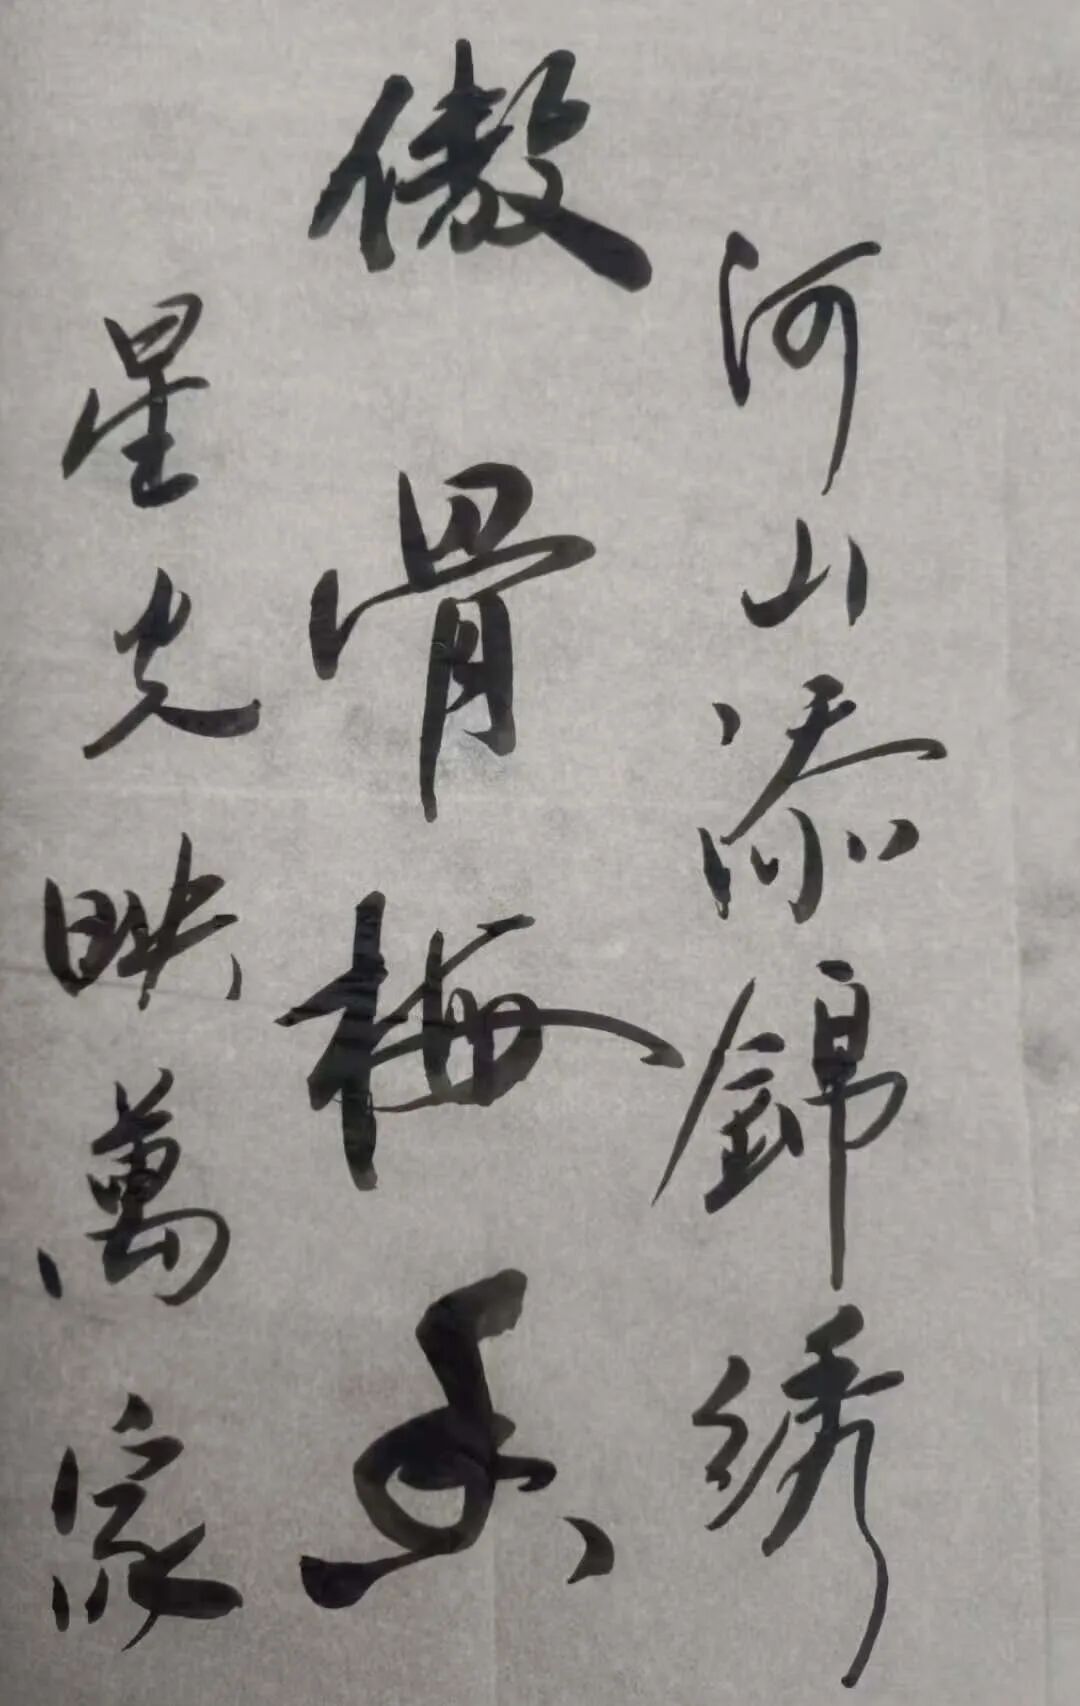 河山添錦绣
傲骨梅香
星光映萬家